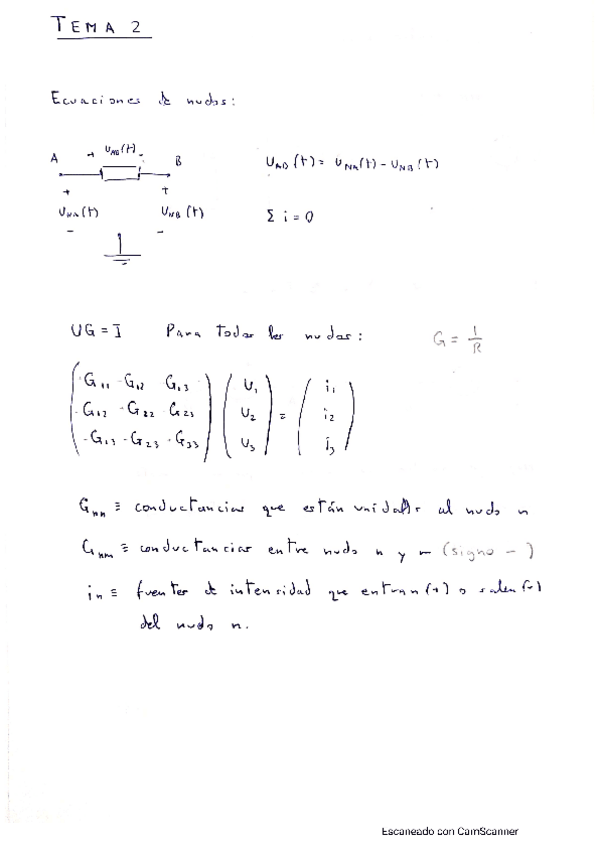 TEMA 2
Ecuaciones de nudos:
A + U_AB(t) - B U_AB(t) = U_NA(t) - U_NB(t)
+ +
U_NA(t) U_NB(t) Σ i = 0
- -
UG = I Para todos los nudos: G = 1/R
G11 -G12 G13 U1 i1
-G12 -G22 G23 U2 = i2
-G13 -G23 -G33 U3 i3
Gnn ≡ conductancias que están unidas al nudo n
Gnm ≡ conductancias entre nudo n y m (signo -)
in ≡ fuentes de intensidad que entran (+) o salen (-)
del nudo n.
Escaneado con CamScanner